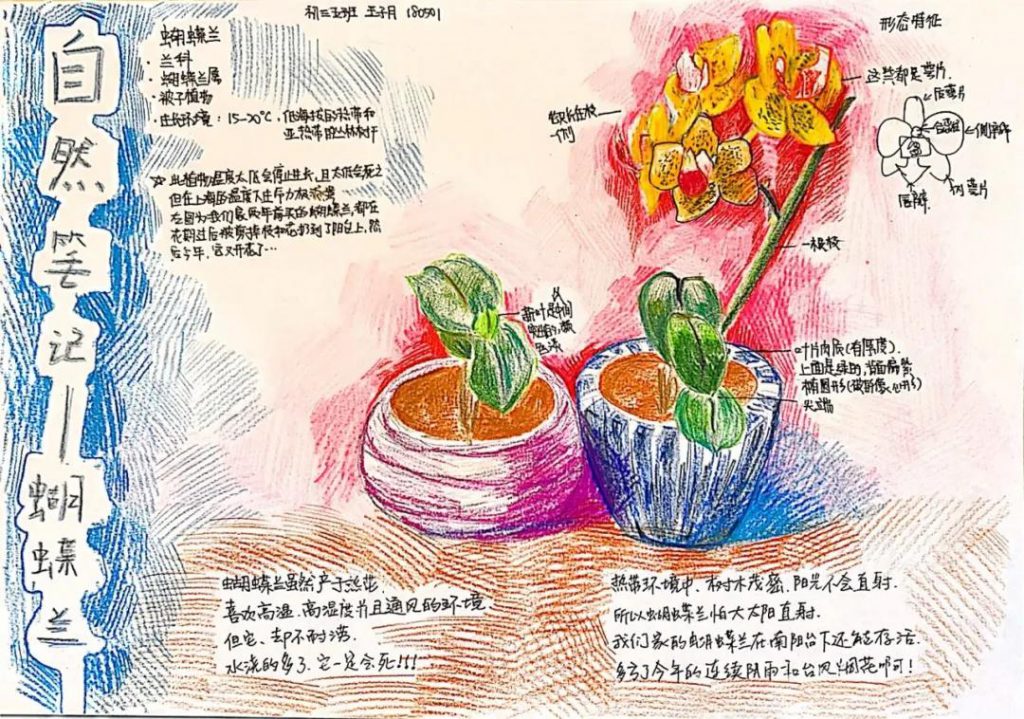 自然笔记——蝴蝶兰
初三五班 王子月 180501
蝴蝶兰
· 兰科
· 蝴蝶兰属
· 被子植物
· 生长环境：15-20℃，低海拔的热带和
亚热带的丛林树干
☆ 此植物温度太低会停止生长，且太低会死亡
但在上海的温度下生命力极
在因为我们家两年前买的蝴蝶兰，都在
花期过后被剪掉枝和花扔到了阳台上，随
后今年，它又开花了…
形态特征
这些都是萼片.
后萼片
合蕊柱
侧萼片
唇瓣
一根枝
新叶是中间
叶片肉质(有厚度).
上面是绿的，背面紫
椭圆形
尖端
蝴蝶兰虽然产于热带.
喜欢高湿、高温度并且通风的环境.
但它、却不耐涝.
水浇的多了.它一定会死!!!
热带环境中、树木茂密，阳光不会直射.
所以蝴蝶兰怕大太阳直射.
我们家的蝴蝶兰在南阳台下还能存活.
多亏了今年的连续阴雨和台风烟花啊！